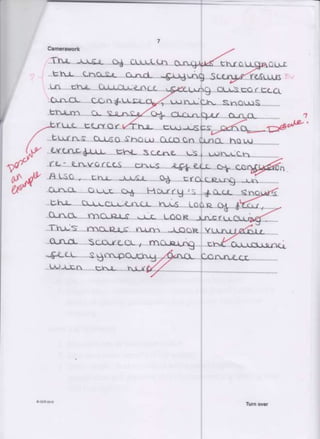 7
Camerawork
The use of dutch angles throughout
the chase and fleeing scenes results
in the audience feeling distorted
and confused, which shows
them a sense of danger and
true terror. The twists and
turns also show
the scene is which
re-enforces this effect of confusion
Also, the use of tracking in
and out of Harry's face shows
the audience his look of fear,
and makes it look intruding.
This makes him look vunerable
and scared, making the audience
feel sympathy and connect
with the hero
Describe?
Describe
an
example
Turn over